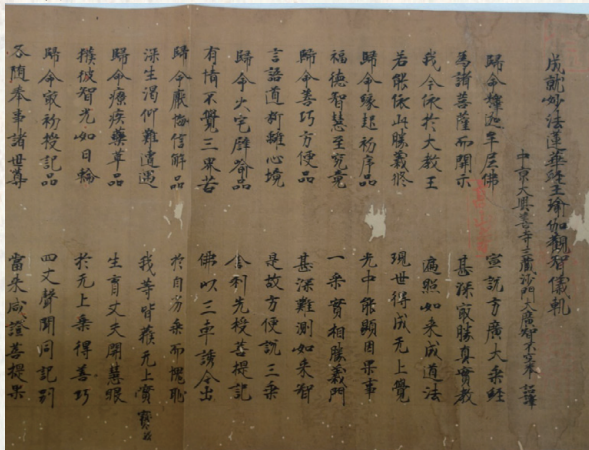 成就妙法蓮華經王瑜伽觀智儀軌
中京大興善寺三藏沙門大廣智不空奉 詔譯
歸命釋迦牟尼佛 宣說方廣大乘經
為諸菩薩而開示 甚深最勝真實教
我今依於大教王 遍照如來成道法
若能依此勝義修 現世得成无上覺
歸命緣起初序品 光中能顯因果事
福德智慧至究竟 一乘實相勝義門
歸命善巧方便品 甚深難測如來智
言語道斷離心境 是故方便說三乘
歸命火宅譬喻品 舍利先授菩提記
有情不覺三界苦 佛以三車誘令出
歸命厥悟信解品 於自劣乘而愧恥
深生渴仰難遭遇 我等皆獲无上寶
歸命療疾藥草品 生盲丈夫開慧眼
獲彼智光如日輪 於无上乘得善巧
歸命最初授記品 四大聲聞同記別
各隨奉事諸世尊 當來咸證菩提果